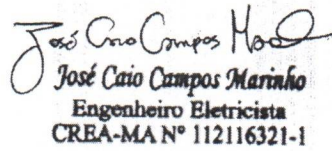 José Caio Campos Mar
José Caio Campos Marinho
Engenheiro Eletricista
CREA-MA Nº 112116321-1